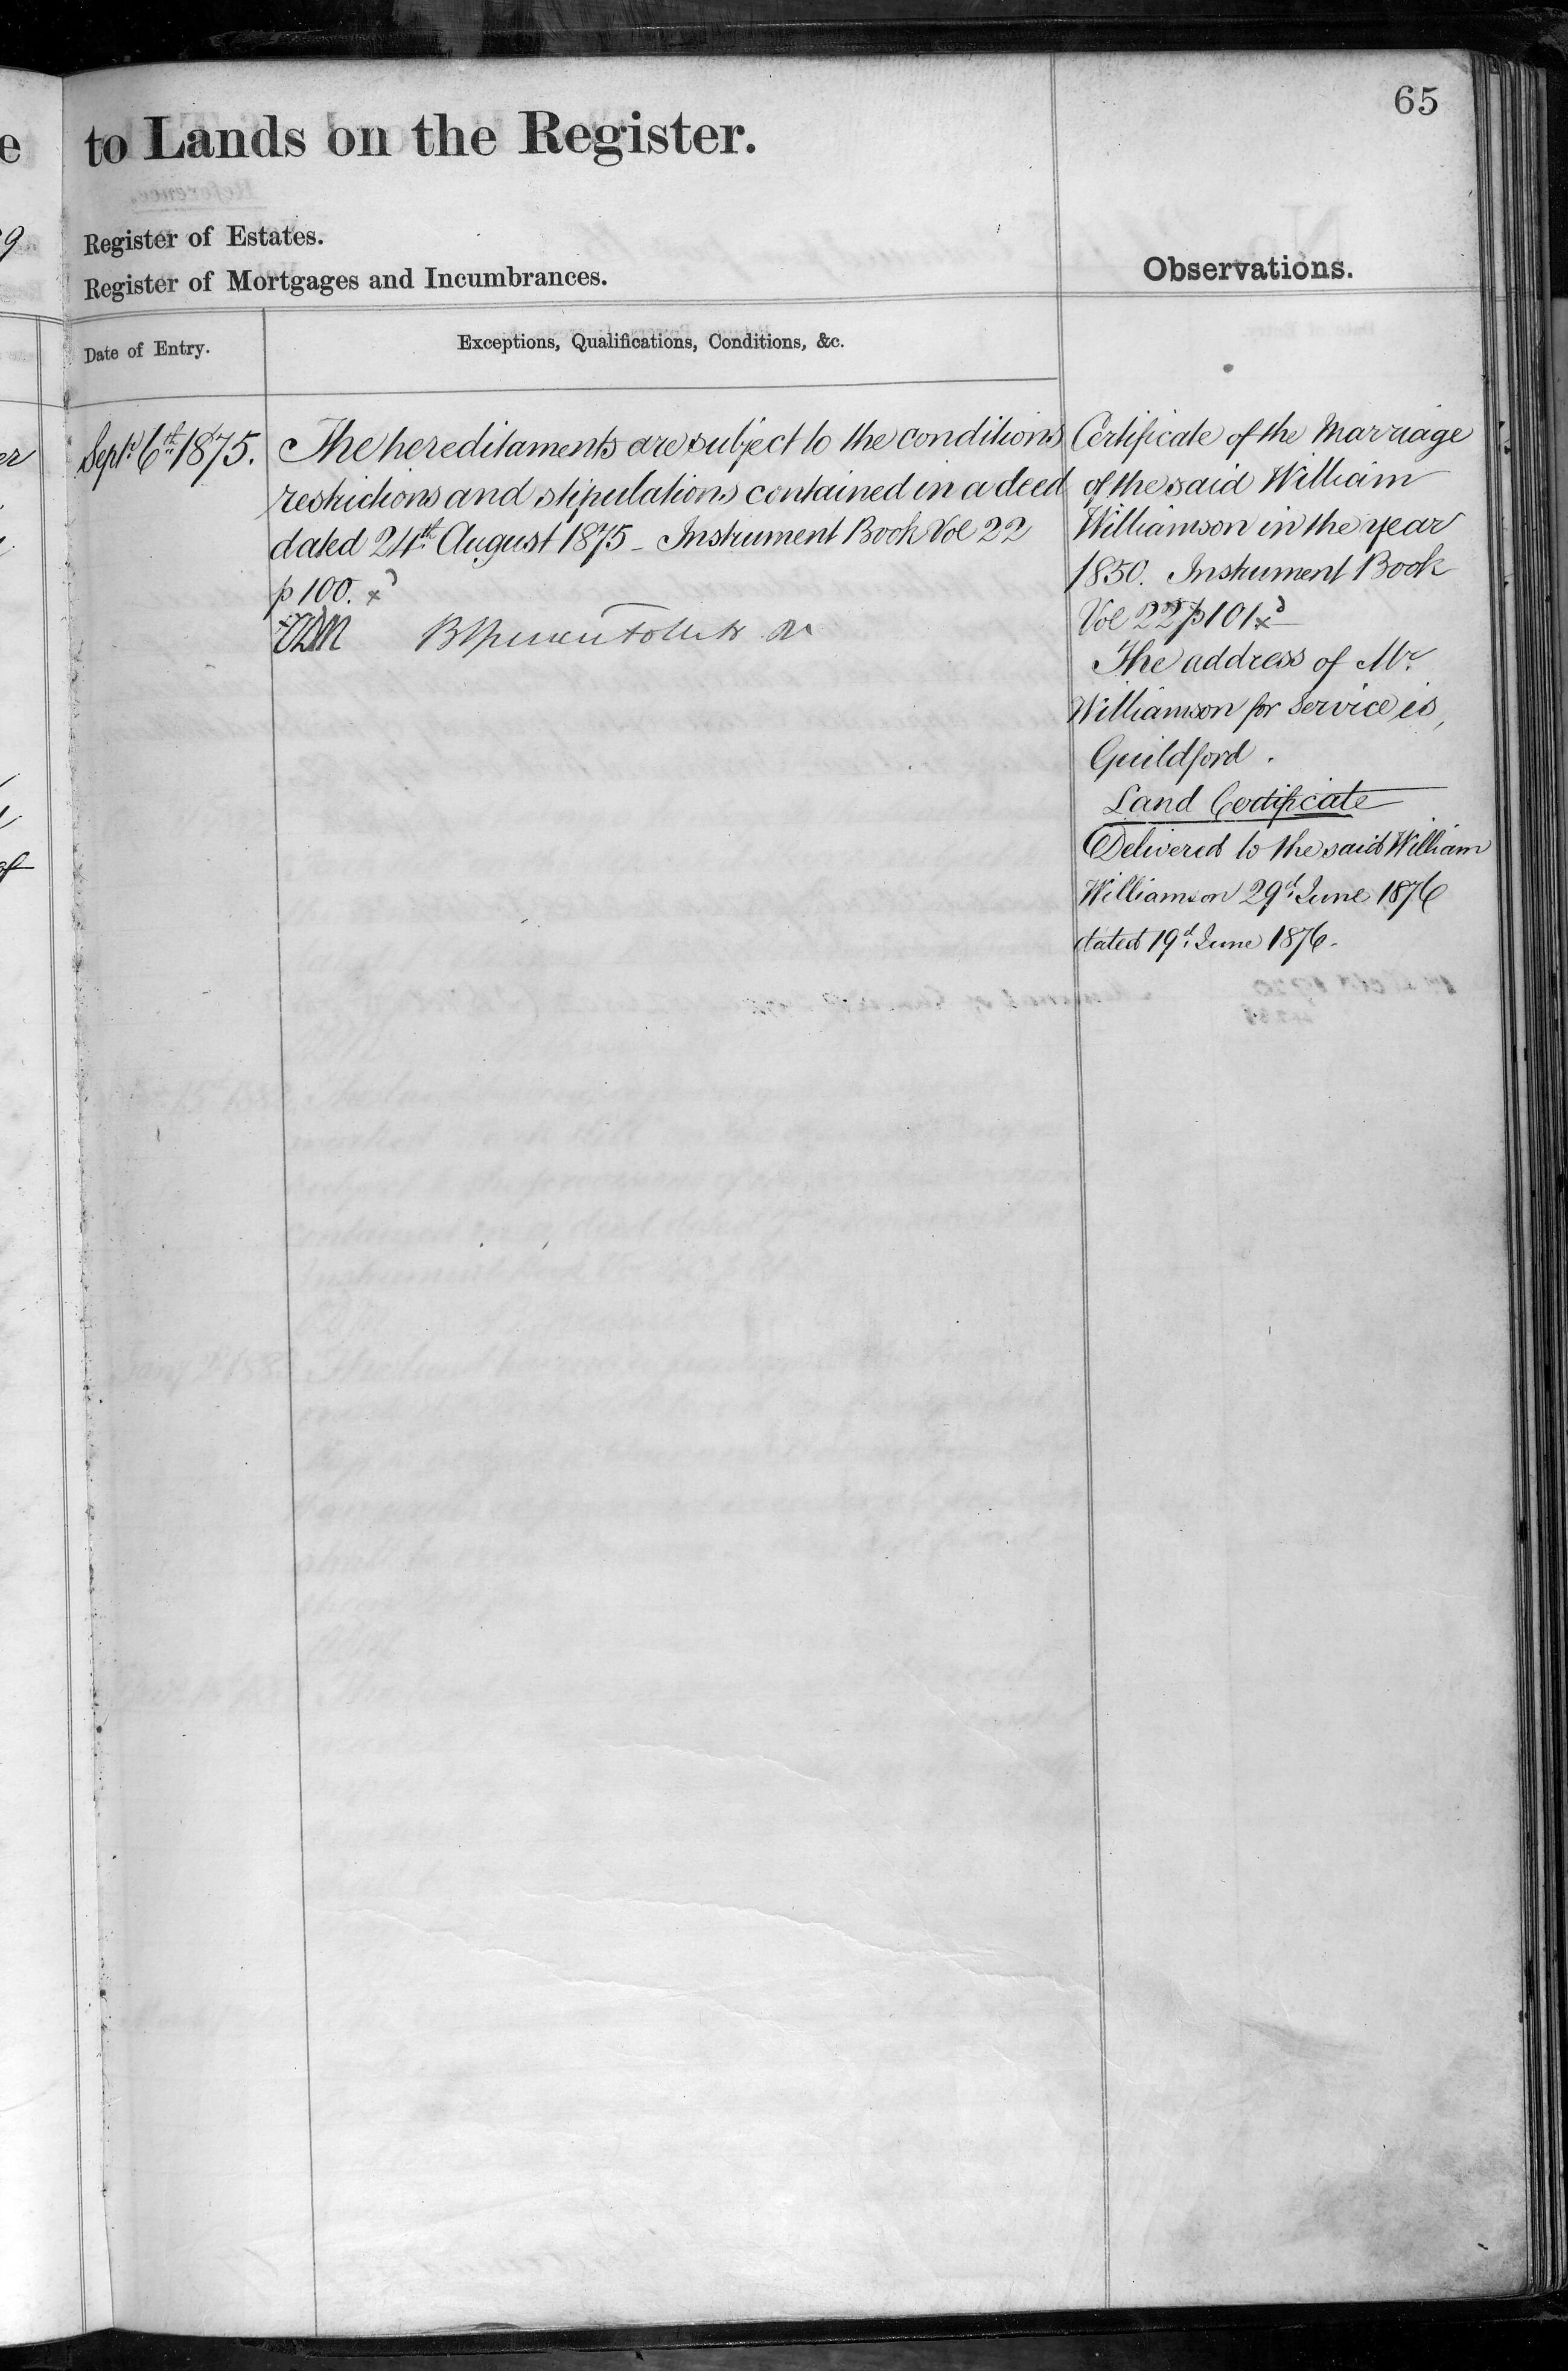 65
to Lands on the Register.
Register of Estates.
Register of Mortgages and Incumbrances.
Observations.
Date of Entry.
Exceptions, Qualifications, Conditions, &c.
Septr 6th 1875.
The hereditaments are subject to the conditions
restrictions and stipulations contained in a deed
dated 24th August 1875 - Instrument Book Vol 22
p 100.
Certificate of the Marriage
of the said William
Williamson in the year
1850. Instrument Book
Vol 22 p 101
The address of Mr.
Williamson for Service is,
Guildford.
Land Certificate
Delivered to the said William
Williamson 29th June 1876
dated 19th June 1876.